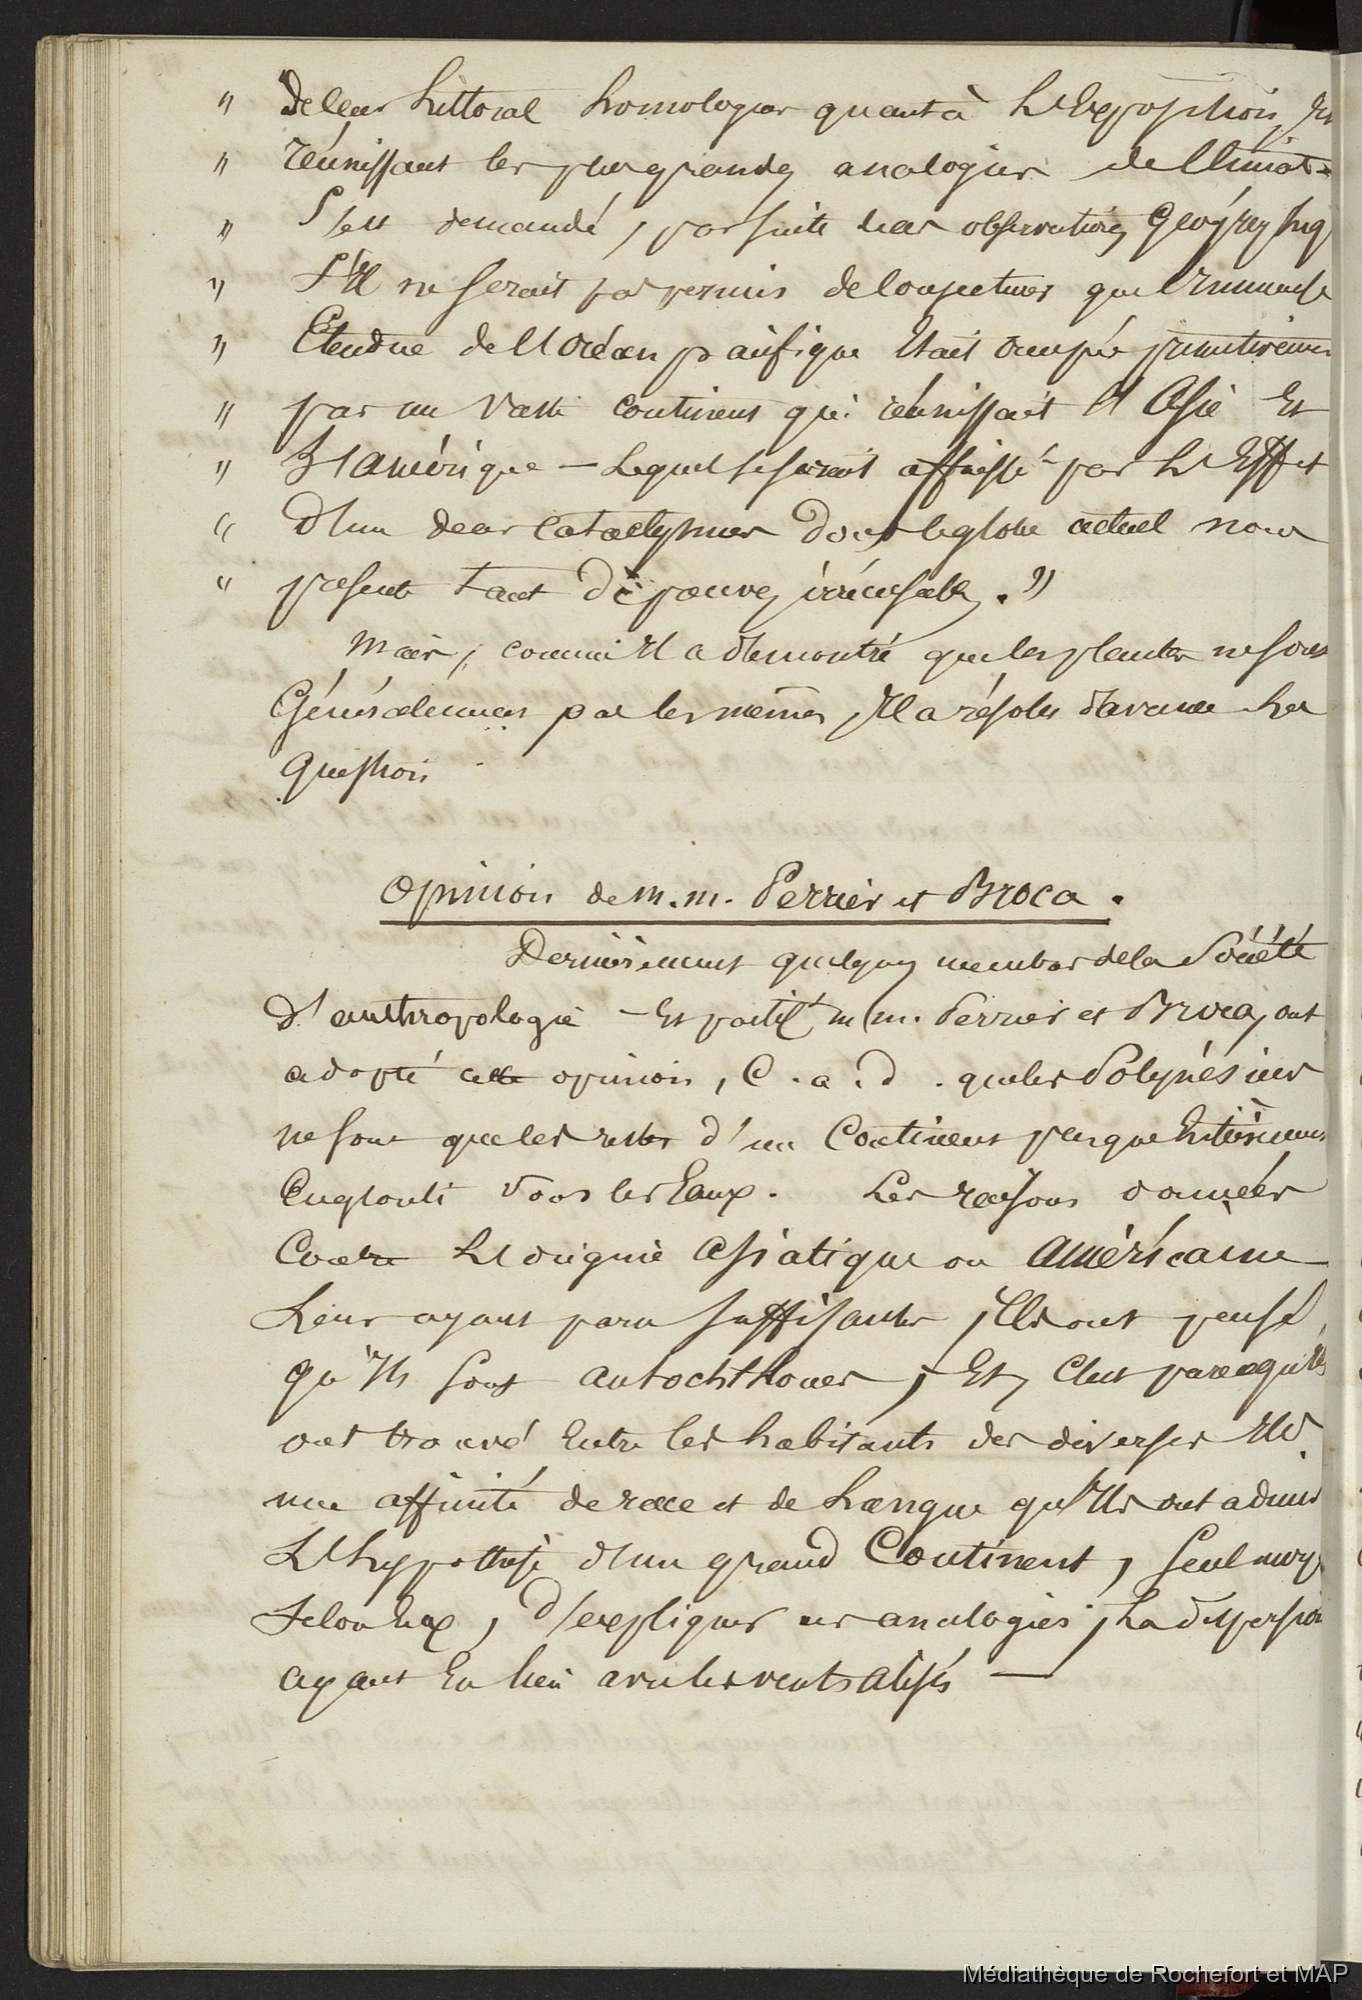 " de leur littoral homologues quant à l'Exposition, Et
" réunissant les plus grandes analogies de Climat -
" S'est demandé, par suite de ces observations Géogrephiq
" S'il ne serait pas permis de conjecturer que l'immense
" Etendue de l'océan pacifique Etait occupée primitivemen
" par un Vaste continent qui réunissait l'Asie Et
" l'amérique – lequel se serait affaissé par l'Effet
" d'un de ces cataclysmes dont le globe actuel nous
" présente tant de preuves irrécusables. "
Mais, comme il a démontré que les plantes ne sont
Généralement pas les mêmes, Il a résolu d'avance la
question
Opinion de m.m. Perrier et Broca.
Dernièrement quelques membres de la Société
d'anthropologie – Et partil m.m. Perrier et Broca, ont
adopté cette opinion, C.a.d. que les Polynésiens
ne sont que les restes d'un Continent presque Entièrement
Englouti sous les Eaux. Les raisons données
Contre l'origine Asiatique ou américaine
Leur ayant paru suffisantes, Ils ont pensé
qu'Ils sont autochthones, Et, C'est parcequ'ils
ont trouvé Entre les habitants des diverses Iles
une affinité de race et de Langue qu'Ils ont admis
L'hypothèse d'un grand Continent, Seul moy
Selon Eux, d'expliquer ces analogies, La dispersion
ayant Eu lieu avec les vents alisés —
Médiathèque de Rochefort et MAP